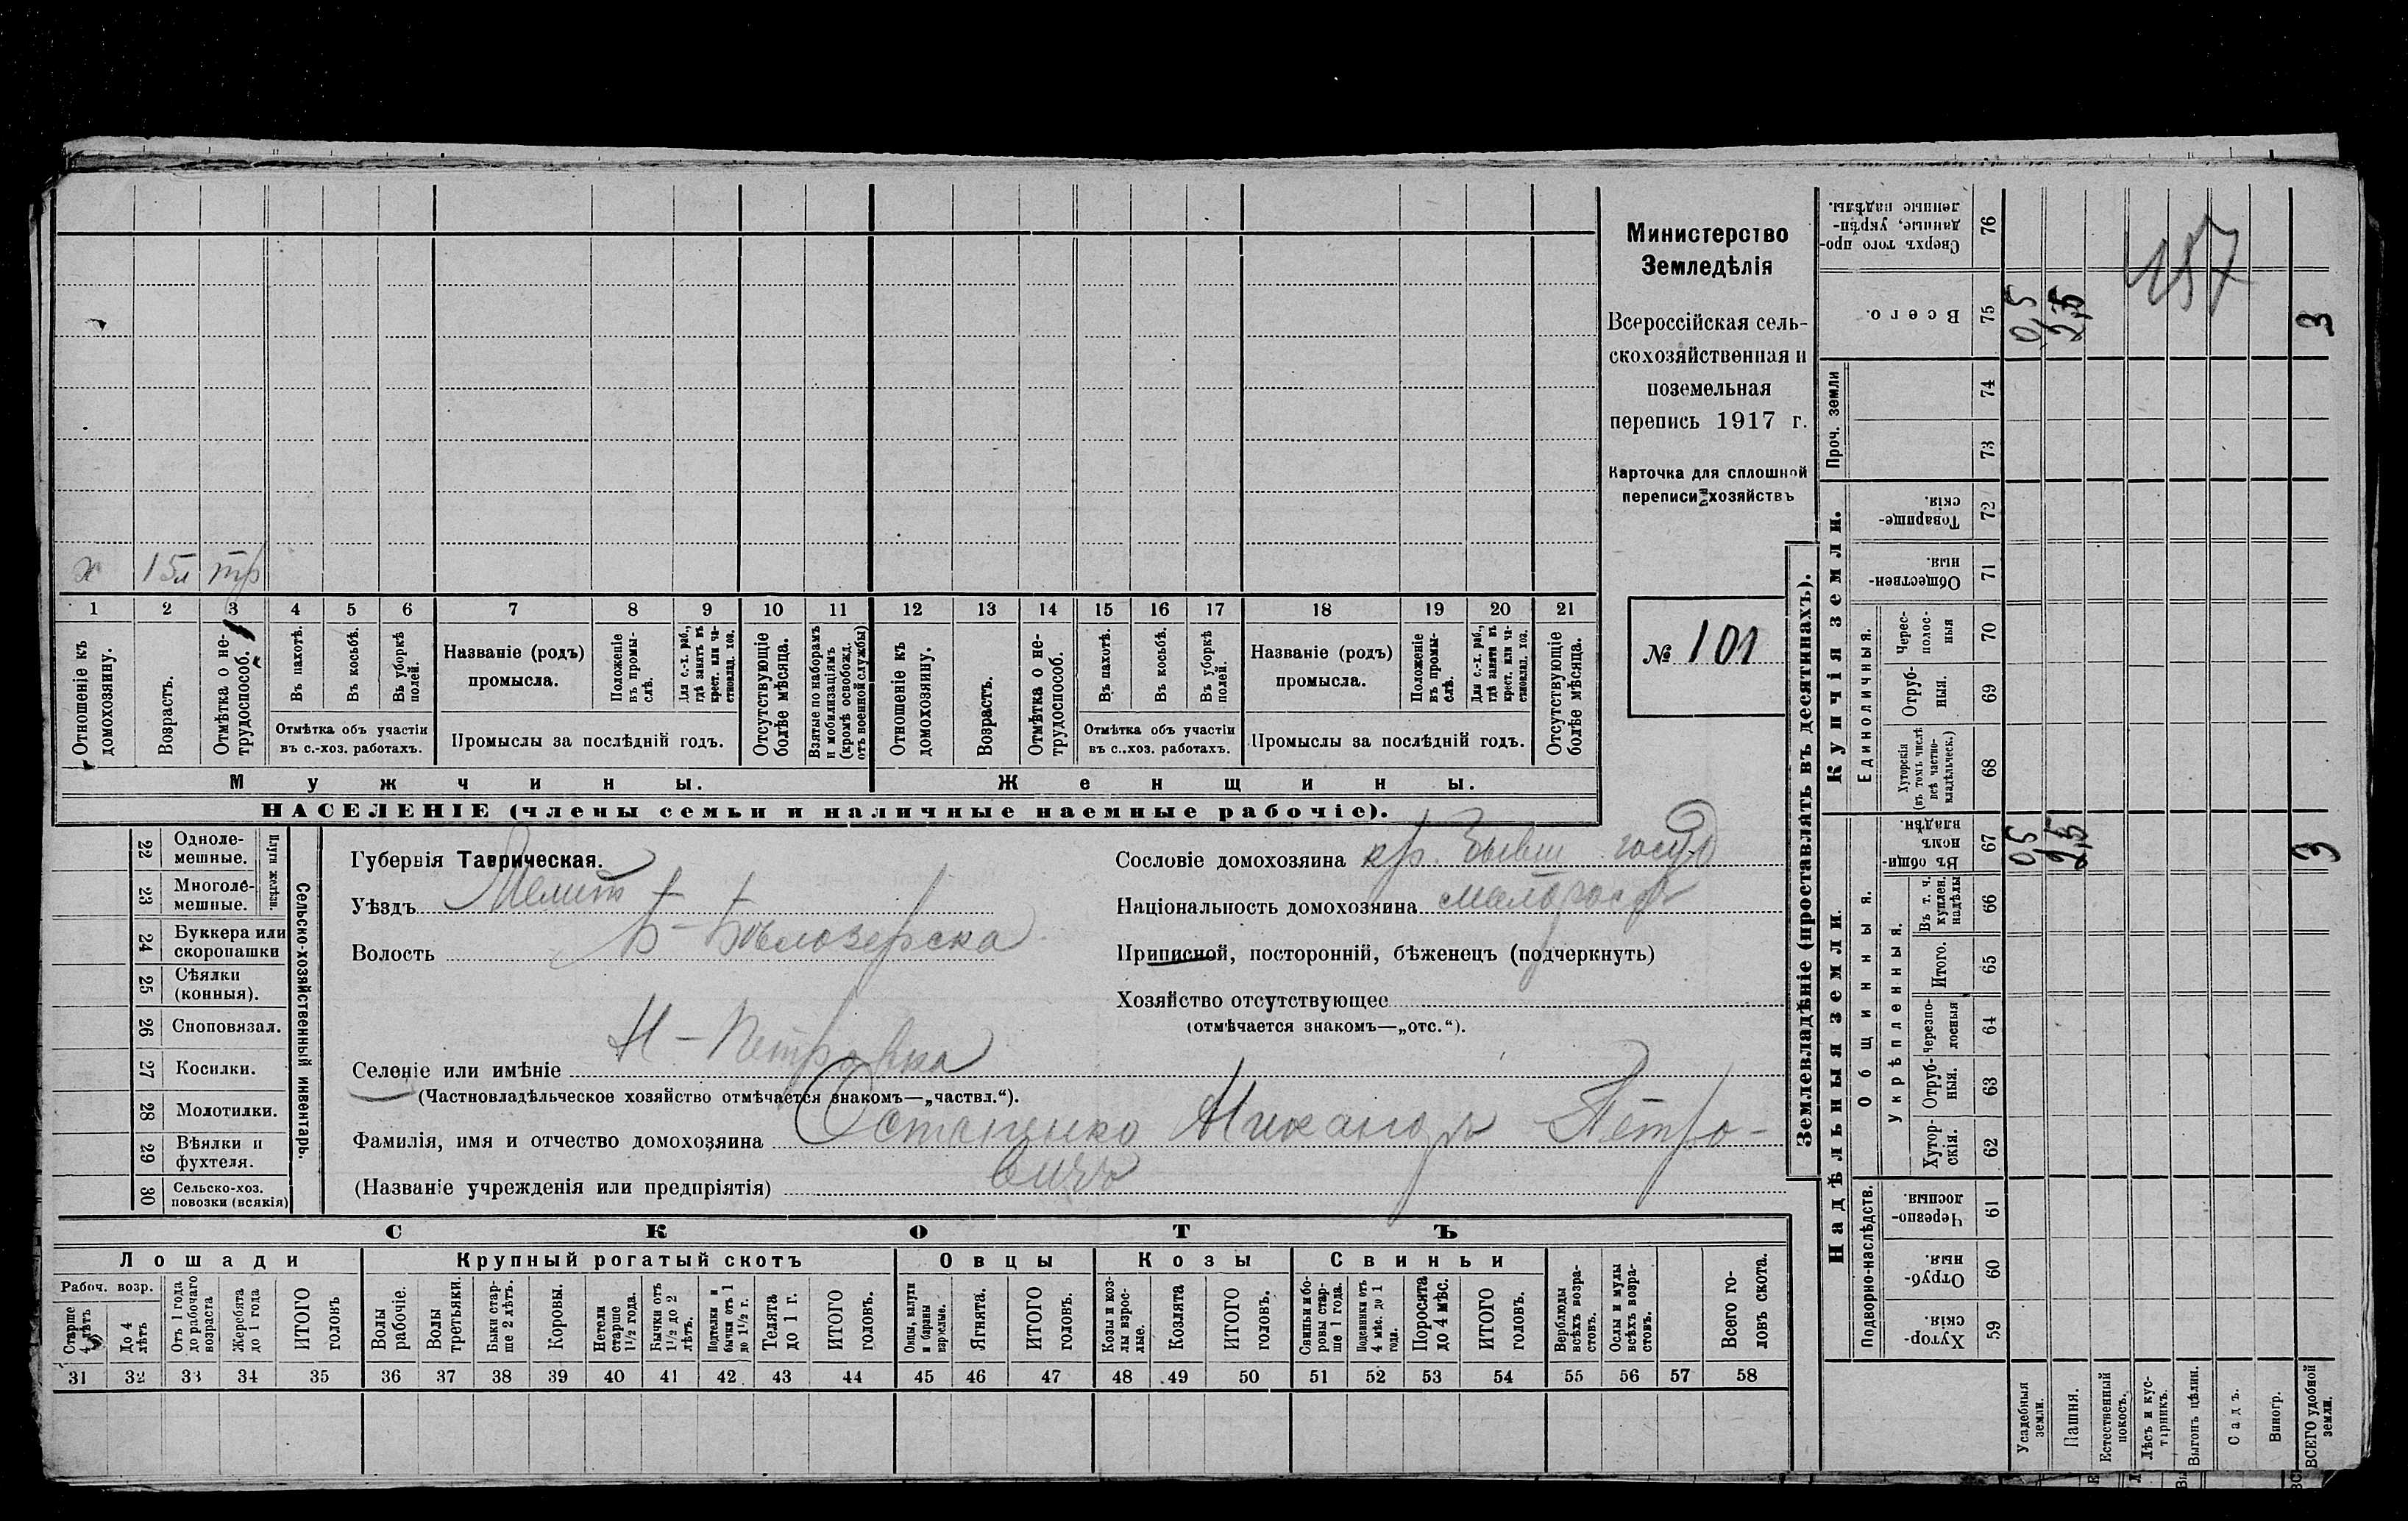 х 15л тр
1 2 3 4 5 6 7 8 9 10 11 12 13 14 15 16 17 18 19 20 21
Отношеніе къ домохозяину.
Возрастъ.
Отмѣтка о не-трудоспособ.
Въ пахотѣ.
Въ косьбѣ.
Въ уборкѣ полей.
Отмѣтка объ участіи
въ с.-хоз. работахъ.
Названіе (родъ)
промысла.
Положеніе въ промы-слѣ.
Для с.-х. раб., гдѣ занятъ въ крест. или ча-стновлад. хоз.
Промыслы за послѣдній годъ.
Отсутствующіе болѣе мѣсяца.
Взятые по наборамъ и мобилизаціямъ (кромѣ освобожд. отъ военной службы)
Отношеніе къ домохозяину.
Возрастъ.
Отмѣтка о не-трудоспособ.
Въ пахотѣ.
Въ косьбѣ.
Въ уборкѣ полей.
Отмѣтка объ участіи
въ с.-хоз. работахъ.
Названіе (родъ)
промысла.
Положеніе въ промы-слѣ.
Для с.-х. раб., гдѣ занята въ крест. или ча-стновлад. хоз.
Промыслы за послѣдній годъ.
Отсутствующіе болѣе мѣсяца.
Мужчины. Женщины.
НАСЕЛЕНІЕ (члены семьи и наличные наемные рабочіе).
Министерство
Земледѣлія
Всероссійская сель-
скохозяйственная и
поземельная
перепись 1917 г.
Карточка для сплошной
переписи хозяйствъ
№ 101
22 Одноле-мешные.
23 Многоле-мешные.
Плуги желѣзн.
24 Буккера или скоропашки
25 Сѣялки (конныя).
26 Сноповязал.
27 Косилки.
28 Молотилки.
29 Вѣялки и фухтеля.
30 Сельско-хоз. повозки (всякія)
Сельско-хозяйственный инвентарь.
Губернія Таврическая.
Уѣздъ Мелит
Волость Б-Бѣлозерска
Селеніе или имѣніе Н-Петровка
(Частновладѣльческое хозяйство отмѣчается знакомъ—„частвл.“).
Фамилія, имя и отчество домохозяина Остапенко Никаноръ Петро-
вичъ
(Названіе учрежденія или предпріятія)
Сословіе домохозяина кр. бывш госуд
Національность домохозяина малороссъ
Приписной, посторонній, бѣженецъ (подчеркнуть)
Хозяйство отсутствующее
(отмѣчается знакомъ—„отс.“).
СКОТЪ
Лошади Крупный рогатый скотъ Овцы Козы Свиньи
Рабоч. возр.
Старше 4 лѣтъ
До 4 лѣтъ
Отъ 1 года до рабочаго возраста
Жеребята до 1 года
ИТОГО головъ
Волы рабочіе.
Волы третьяки.
Быки стар-ше 2 лѣтъ.
Коровы.
Нетели старше 1½ года.
Бычки отъ 1½ до 2 лѣтъ.
Подтелки и бычки отъ 1 до 1½ г.
Телята до 1 г.
ИТОГО головъ.
Овцы, валухи и бараны взрослые.
Ягнята.
ИТОГО головъ.
Козы и коз-лы взрос-лые.
Козлята
ИТОГО головъ.
Свиньи и бо-ровы стар-ше 1 года.
Подсвинки отъ 4 мѣс. до 1 года.
Поросята до 4 мѣс.
ИТОГО головъ.
Верблюды всѣхъ возра-стовъ.
Ослы и мулы всѣхъ возра-стовъ.
Всего го-ловъ скота.
31 32 33 34 35 36 37 38 39 40 41 42 43 44 45 46 47 48 49 50 51 52 53 54 55 56 57 58
Землевладѣніе (проставлять въ десятинахъ).
Надѣльныя земли. Купчія земли. Проч. земли
Подворно-наслѣдств. Общинныя. Единоличныя.
Укрѣпленныя.
Сверхъ того про-данные, укрѣп-ленные надѣлы. 76
Всего. 75 0,5 2,5 3
74
73
Товарище-скія. 72
Обществен-ныя. 71
Черес-полос-ныя 70
Отруб-ныя. 69
Хуторскія (въ томъ числѣ всѣ частно-владѣльческ.) 68
Въ общин-номъ владѣн. 67 0,5 2,5 3
Въ т. ч. куплен. надѣлы 66
Итого. 65
Черезпо-лосныя 64
Отруб-ныя. 63
Хутор-скія. 62
Черезпо-лосныя. 61
Отруб-ныя. 60
Хутор-скія. 59
Усадебныя земли.
Пашня.
Естественный покосъ.
Лѣсъ и кус-тарникъ.
Выгонъ цѣлин.
Садъ.
Виногр.
ВСЕГО удобной земли.
157